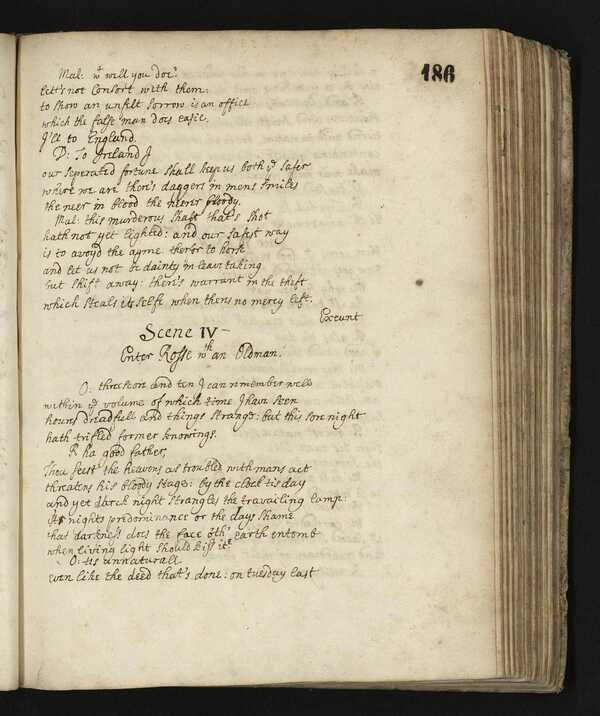 186
Mal: wt will you doe?
lett's not Consort with them:
to show an unfelt sorrow is an office
which the false man does easie.
I'll to England.
D: To Ireland I
our seperated fortune shall keep us both ye safer
where we are there's daggers in mens smiles
the neer in blood the neerer bloody.
Mal: this murderous shaft that's shot
hath not yet lighted: and our safest way
is to avoyd the ayme therfor to horse
and let us not be dainty in leave taking
but shift away: there's warrant in the theft
which steals it selfe when thers no mercy left.
Exeunt
Scene IV
Enter Rosse wth an Oldman.
O: threscore and ten I can remember well
within ye volume of which time I have seen
hours dreadfull and things strange: but this sore night
hath trifled former knowings.
R ha good father,
Thou seest the heavens as troubled with mans act
threatens his bloody stage: by the clock tis day
and yet darck night strangles the travailing lamp:
Is nights predominance or the days shame
that darkness does the face oth' earth entomb
when living light should kiss it?
O: tis unnaturall
even like the deed that's done: on tuesday last